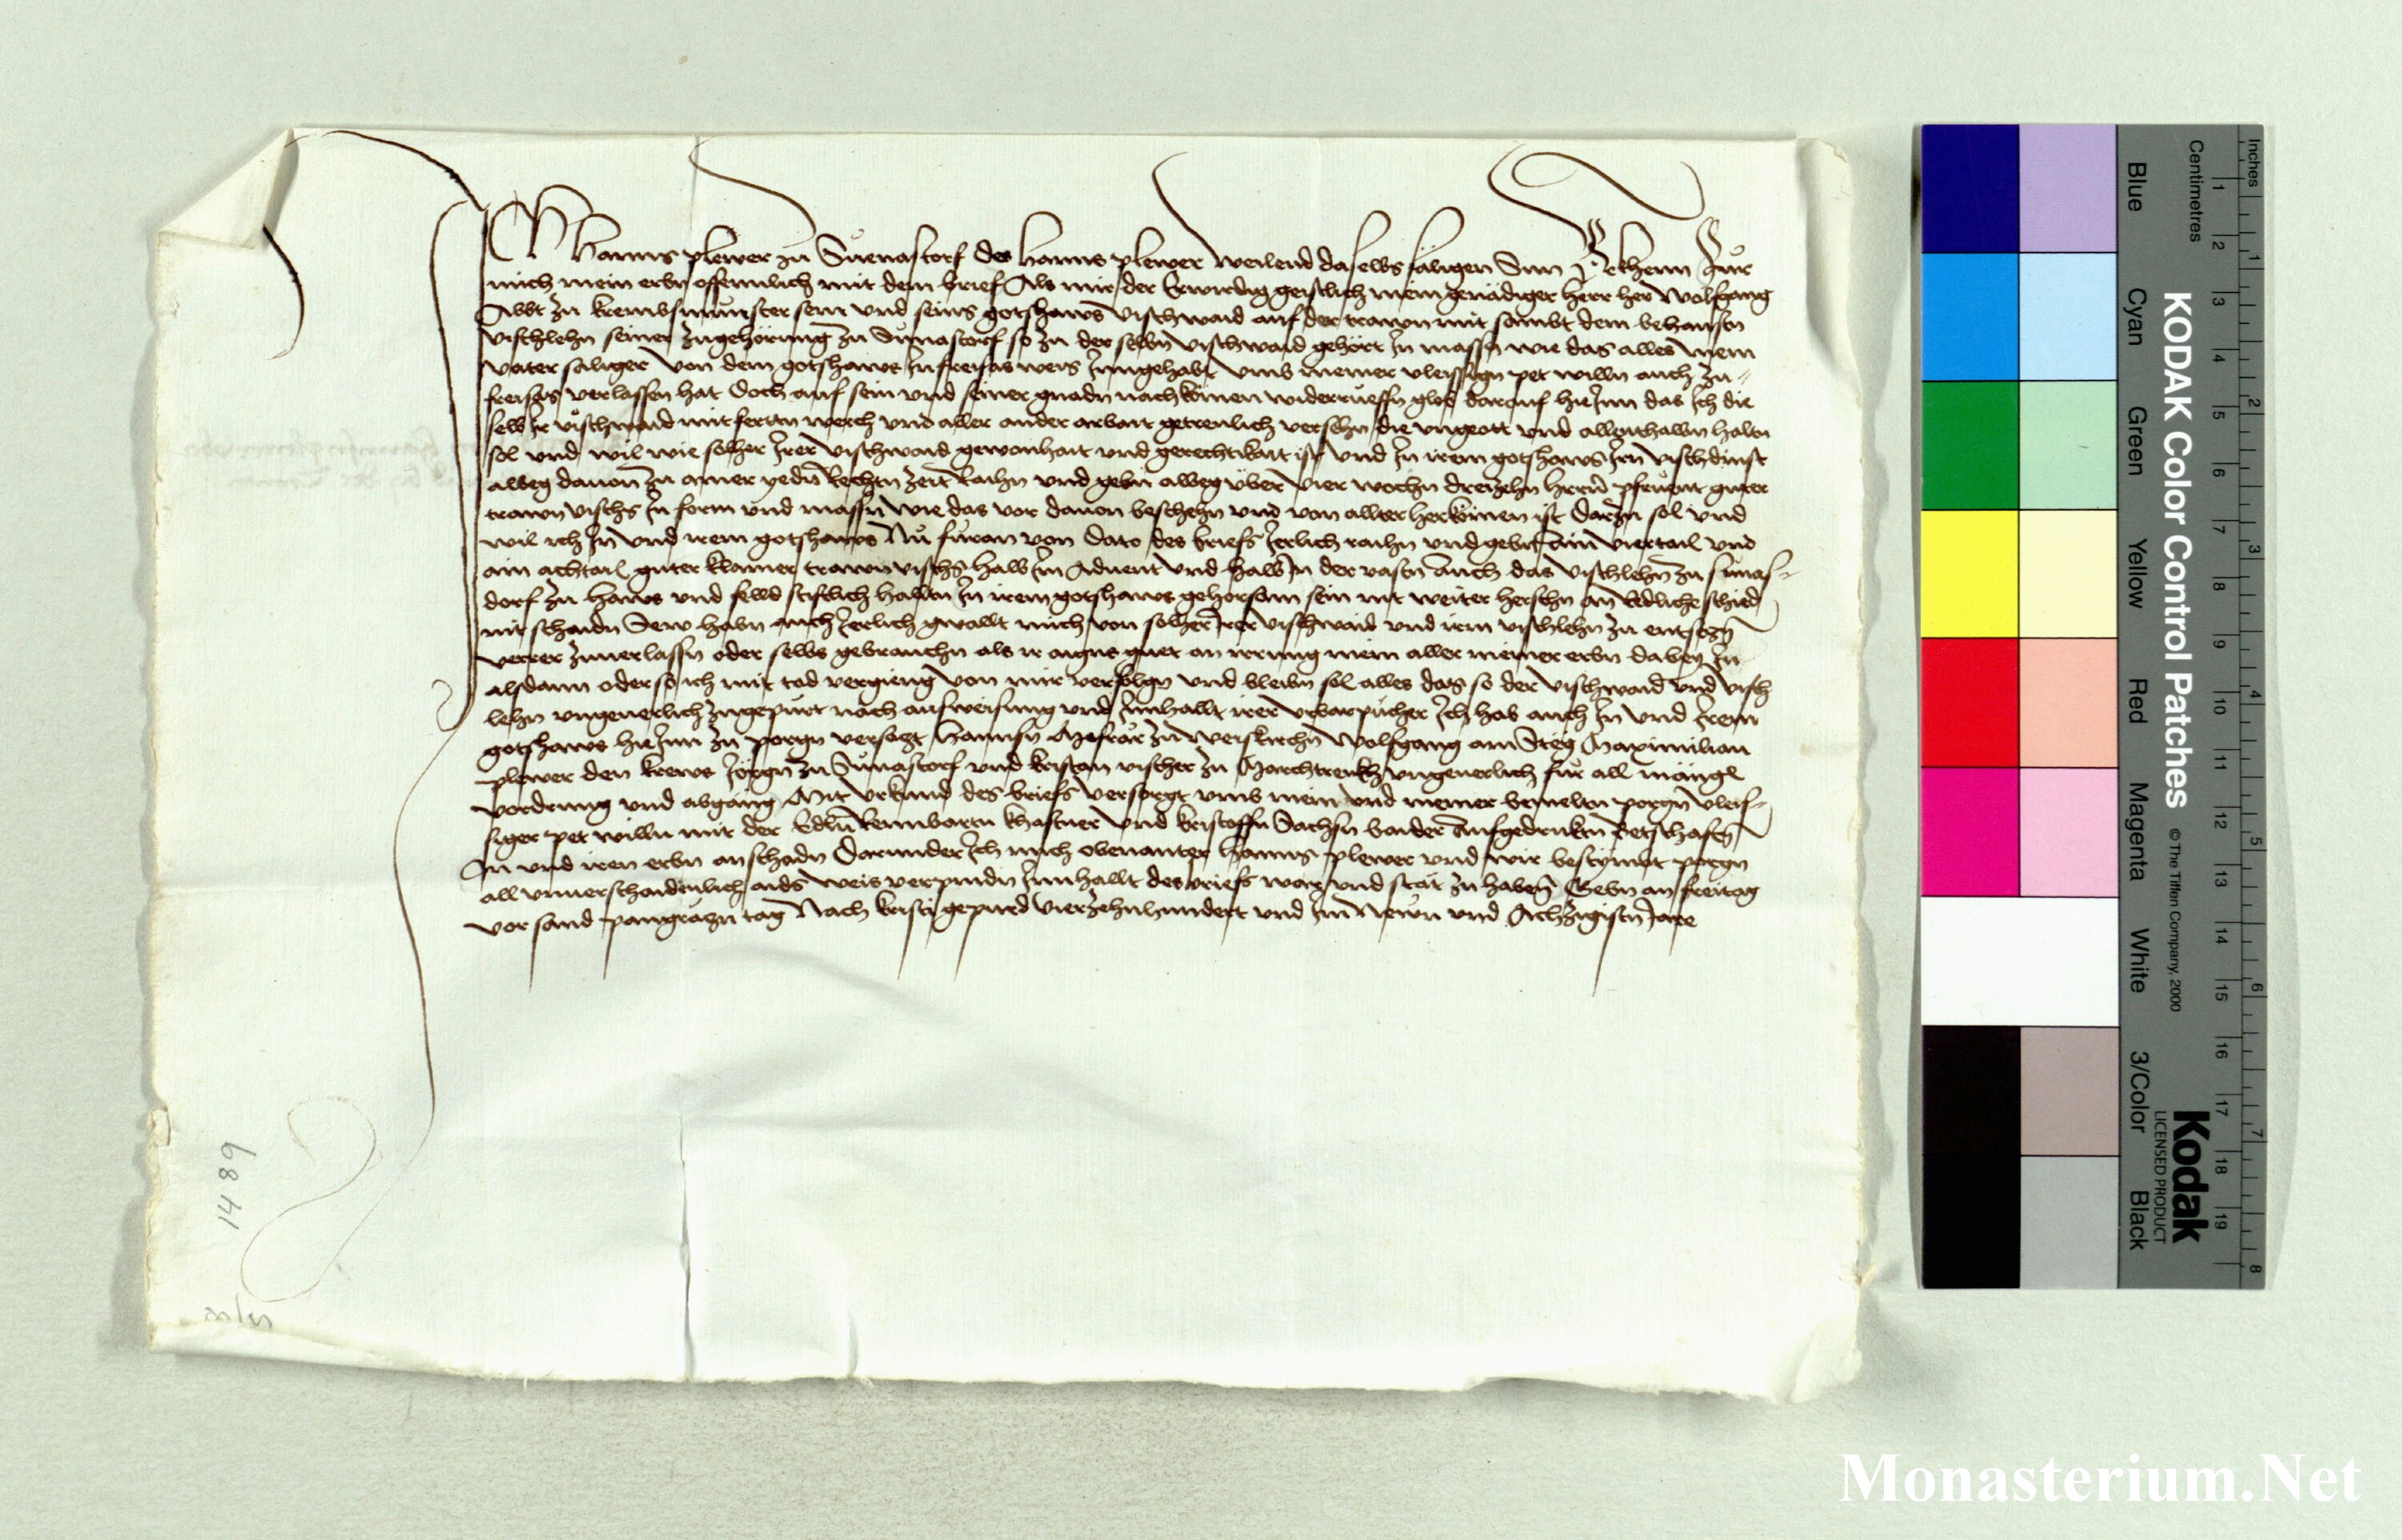 Ich Hanns plewer zu Suenastorf des Hanns plewer weilend daselbs säligen Sun Bekhenn Fur
mich mein erbn offennlich mit dem brief Als mir der Erwirdig geistlich mein genädiger herr her Wolfgang
Abbt zu krembsmunster sein und seins gotshaws vischwaid auf der trawn mit sambt dem behausten
vischlehn seiner zugehorung zu Sunastorf so zu der selbn vischwaid gehört In massn wie das alles mein
vater säliger von dem gotshaws In freisas weis Inngehabt umb meiner vleissign pet willn auch zu
freisas verlassen hat doch auf sein und seiner gnadn nachkömen widerrueffn glob darauf hieInn das Ich die
selb Ir vischwaid mit fertn werch und aller ander arbait getreulich versehn die ungeott und allenthalbn haltn
sol und wil wie solher Irer vischwaid gewonhait und gerechtikait ist und In irem gotshaws Irn vischdinst
alweg dauon zu ainer yedn rechtn zeit raihn und gebn alweg über vier wochn dreizehn herrn pfruent guter
trawn vischs In form und massn wie das vor dauon beschehn und von allter herkömen ist Darzu sol und
wil ich In und irem gotshaws Nu furan von dato des briefs Jerlich raihn und gebn ain viertail und
ain achtail guter klainer trawn vischs halb Im Advent und halb In der vasten auch das vischlehn zu Sunas-
dorf zu haws und felld stiftlich halltn In irem gotshaws gehorsam sein nit weiter herschn an redliche schied
nit schaidn Sew habn auch Jerlich gwallt mich von solher Irer vischwaid und irm vischlehn zu entsezn
verrer zuuerlassn oder selbs gebrauchn als ir aigns guet an irrung mein aller meiner erbn dabey In
alsdann oder so ich mit tod vergieng von mir verfolgn und bleibn sol alles das so der vischwaid und visch
lehn ungeuerlich zugepurt nach ausweisung und Innhallt irer urbarpücher Ich hab auch In und Irem
gotshaws hieInn zu porgn versezt Hannsn Mesrär zu Weiskirchn Wolfgang am Steg Maximilian
plewer den krews Jörgn zu Sunastorf und kristan vischer zu Marchtrenkh ungeuerlich für all mängl
vordrung und abgäng Mit Urkund des briefs versorgt umb mein und meiner bemeltn porgn vleis-
siger pet willn mit der Edln Rennbartn khastner und kristoffn Sachsn baider aufgedruktn Petschaftn
In und iren erbn an schadn Darunder Ich mich obenanter Hanns plewer und wir bestymbt porgn
all unuerschaidenlich aids weis verpindn Innhallt des briefs war und stät zu habenn Gebn an freitag
vor sand pangräzn tag Nach kristi gepurd vierzehnhundert und Im Newn und Achzigistn Jare
1489
Inches
Centimetres
1 2 3 4 5 6 7 8 9 10 11 12 13 14 15 16 17 18 19
1 2 3 4 5 6 7 8
KODAK Color Control Patches
© The Tiffen Company, 2000
Kodak
LICENSED PRODUCT
Blue
Cyan
Green
Yellow
Red
Magenta
White
3/Color
Black
Monasterium.Net